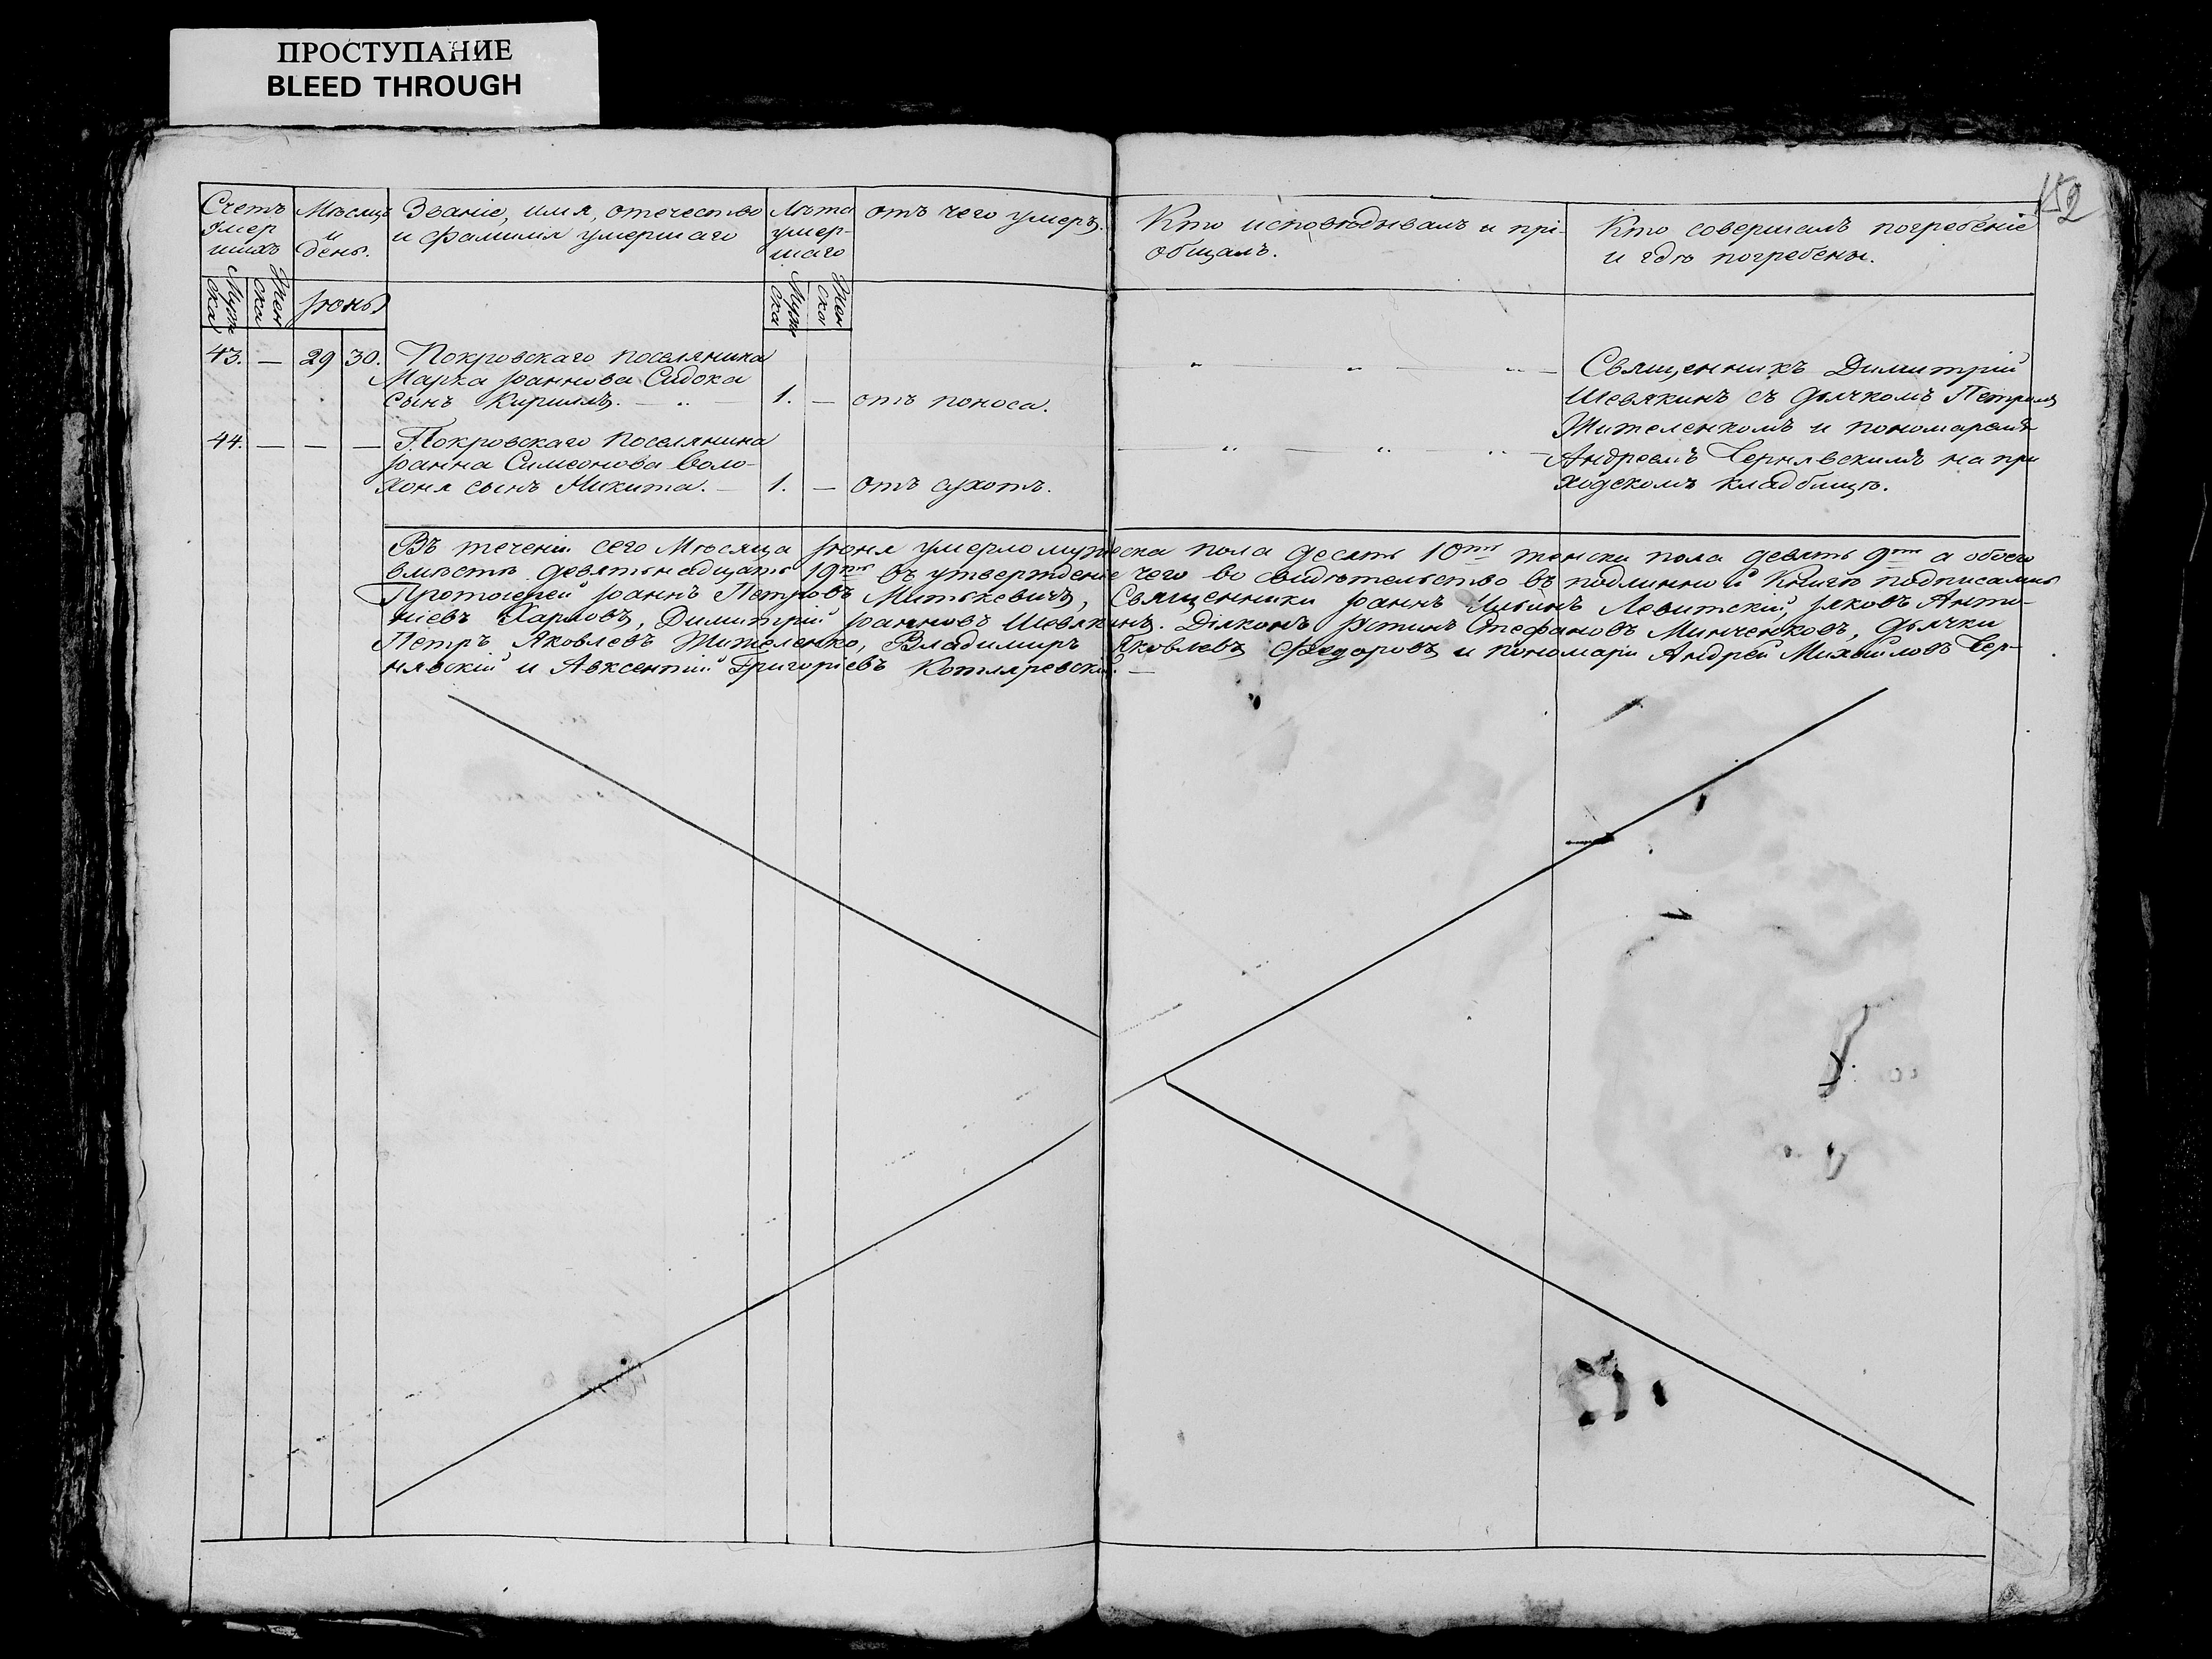 ПРОСТУПАНИЕ
BLEED THROUGH
152
Счетъ умер шихъ
Мѣсяцъ и день.
Званіе, имя, отечество и фамилія умершаго
Лѣта умер-шаго
отъ чего умеръ.
Кто исповѣдывалъ и прі-общалъ.
Кто совершалъ погребеніе и гдѣ погребены.
Муж ска
Жен ска
Іюнь
Муж ска
Жен ска
43. — 29 30. Покровскаго поселянина
Марка Іоаннова Сидока
сынъ Кирилль. — 1. — отъ поноса.
44. — — — Покровскаго поселянина
Іоанна Симеонова Воло-
хоня сынъ Никита. — 1. — отъ сухотъ.
Священникъ Димитрій
Шевякинъ съ дьячкомъ Петромъ
Жителенкомъ и пономаремъ
Андреемъ Чернявскимъ на при
ходскомъ кладбищѣ.
Въ теченіи сего Мѣсяца Іюня умерло мужеска пола десять 10ть женска пола девять 9ть а обоего
вмѣстѣ девятьнадцать 19ть въ утвержденіе чего во свидѣтельство въ подлинной Книгѣ подписались
Протоіерей Іоаннъ Петровъ Митькевичъ, Священники Іоаннъ Левитскій, Іяковъ Анто-
ніевъ Харловъ, Димитрій Іоанновъ Шевякинъ. Діяконъ Іустинъ Стефановъ Минченковъ, дьячки
Петръ Яковлевъ Жителенко, Владимиръ Яковлевъ Федоровъ и пономари Андрей Михайловъ Чер-
нявскій и Авксентій Григоріевъ Котляревскій. —